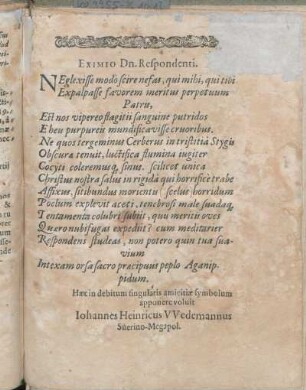 EXIMIO Dn. Respondenti.
NEglexisse modo scire nefas, qui mihi, qui tibi
Expalpasse favorem meritus perpetuum
Patru,
Est nos vipereo flagitii sanguine putridos
E heu purpureis mundificavisse cruoribus.
Ne quos tergeminus Cerberus in tristitia Stygis
Obscura tenuit, luctifica flumina jugiter
Cocyti coleremusq, sinus. scilicet unica
Christus nostra salus horrida qui horrifice trabe
Affixus, sitibundus morienti scelus horridum
Poclum explevit aceti, tenebrosi male suadaq
Tentamenta colubri subiit, quu meritò oves
Quaro nubifugas expediit? cum meditarier
Respondens studeas, non potero quin tua sua-
vium
Intexam orsa sacro præcipuis peplo Aganip-
pidum.
Hæc in debitum singularis amicitiæ symbolum
apponere voluit
Iohannes Heinricus VVedemannus
Suerino-Megapol.